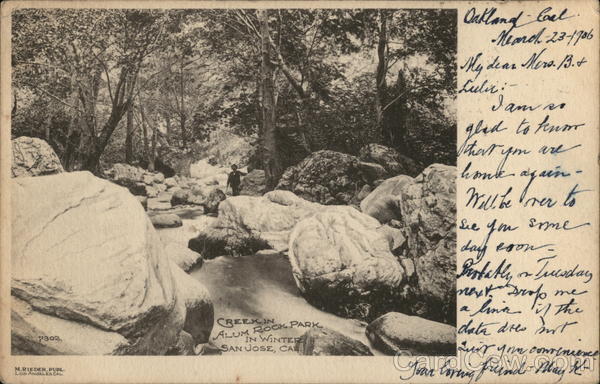 Oakland - Cal.
March - 23 - 1906
My dear Mrs. B. &
Lulie :-
I am so
glad to know
that you are
home again -
Will be over to
see you some
day soon -
Probably on Tuesday
next. Drop me
a line if the
date does not
suit your convenience
Your loving friend - May R -
CREEK IN
ALUM ROCK PARK
IN WINTER
SAN JOSE, CAL.
7302
M. RIEDER, PUBL.
LOS ANGELES, CAL.
CardCow.com